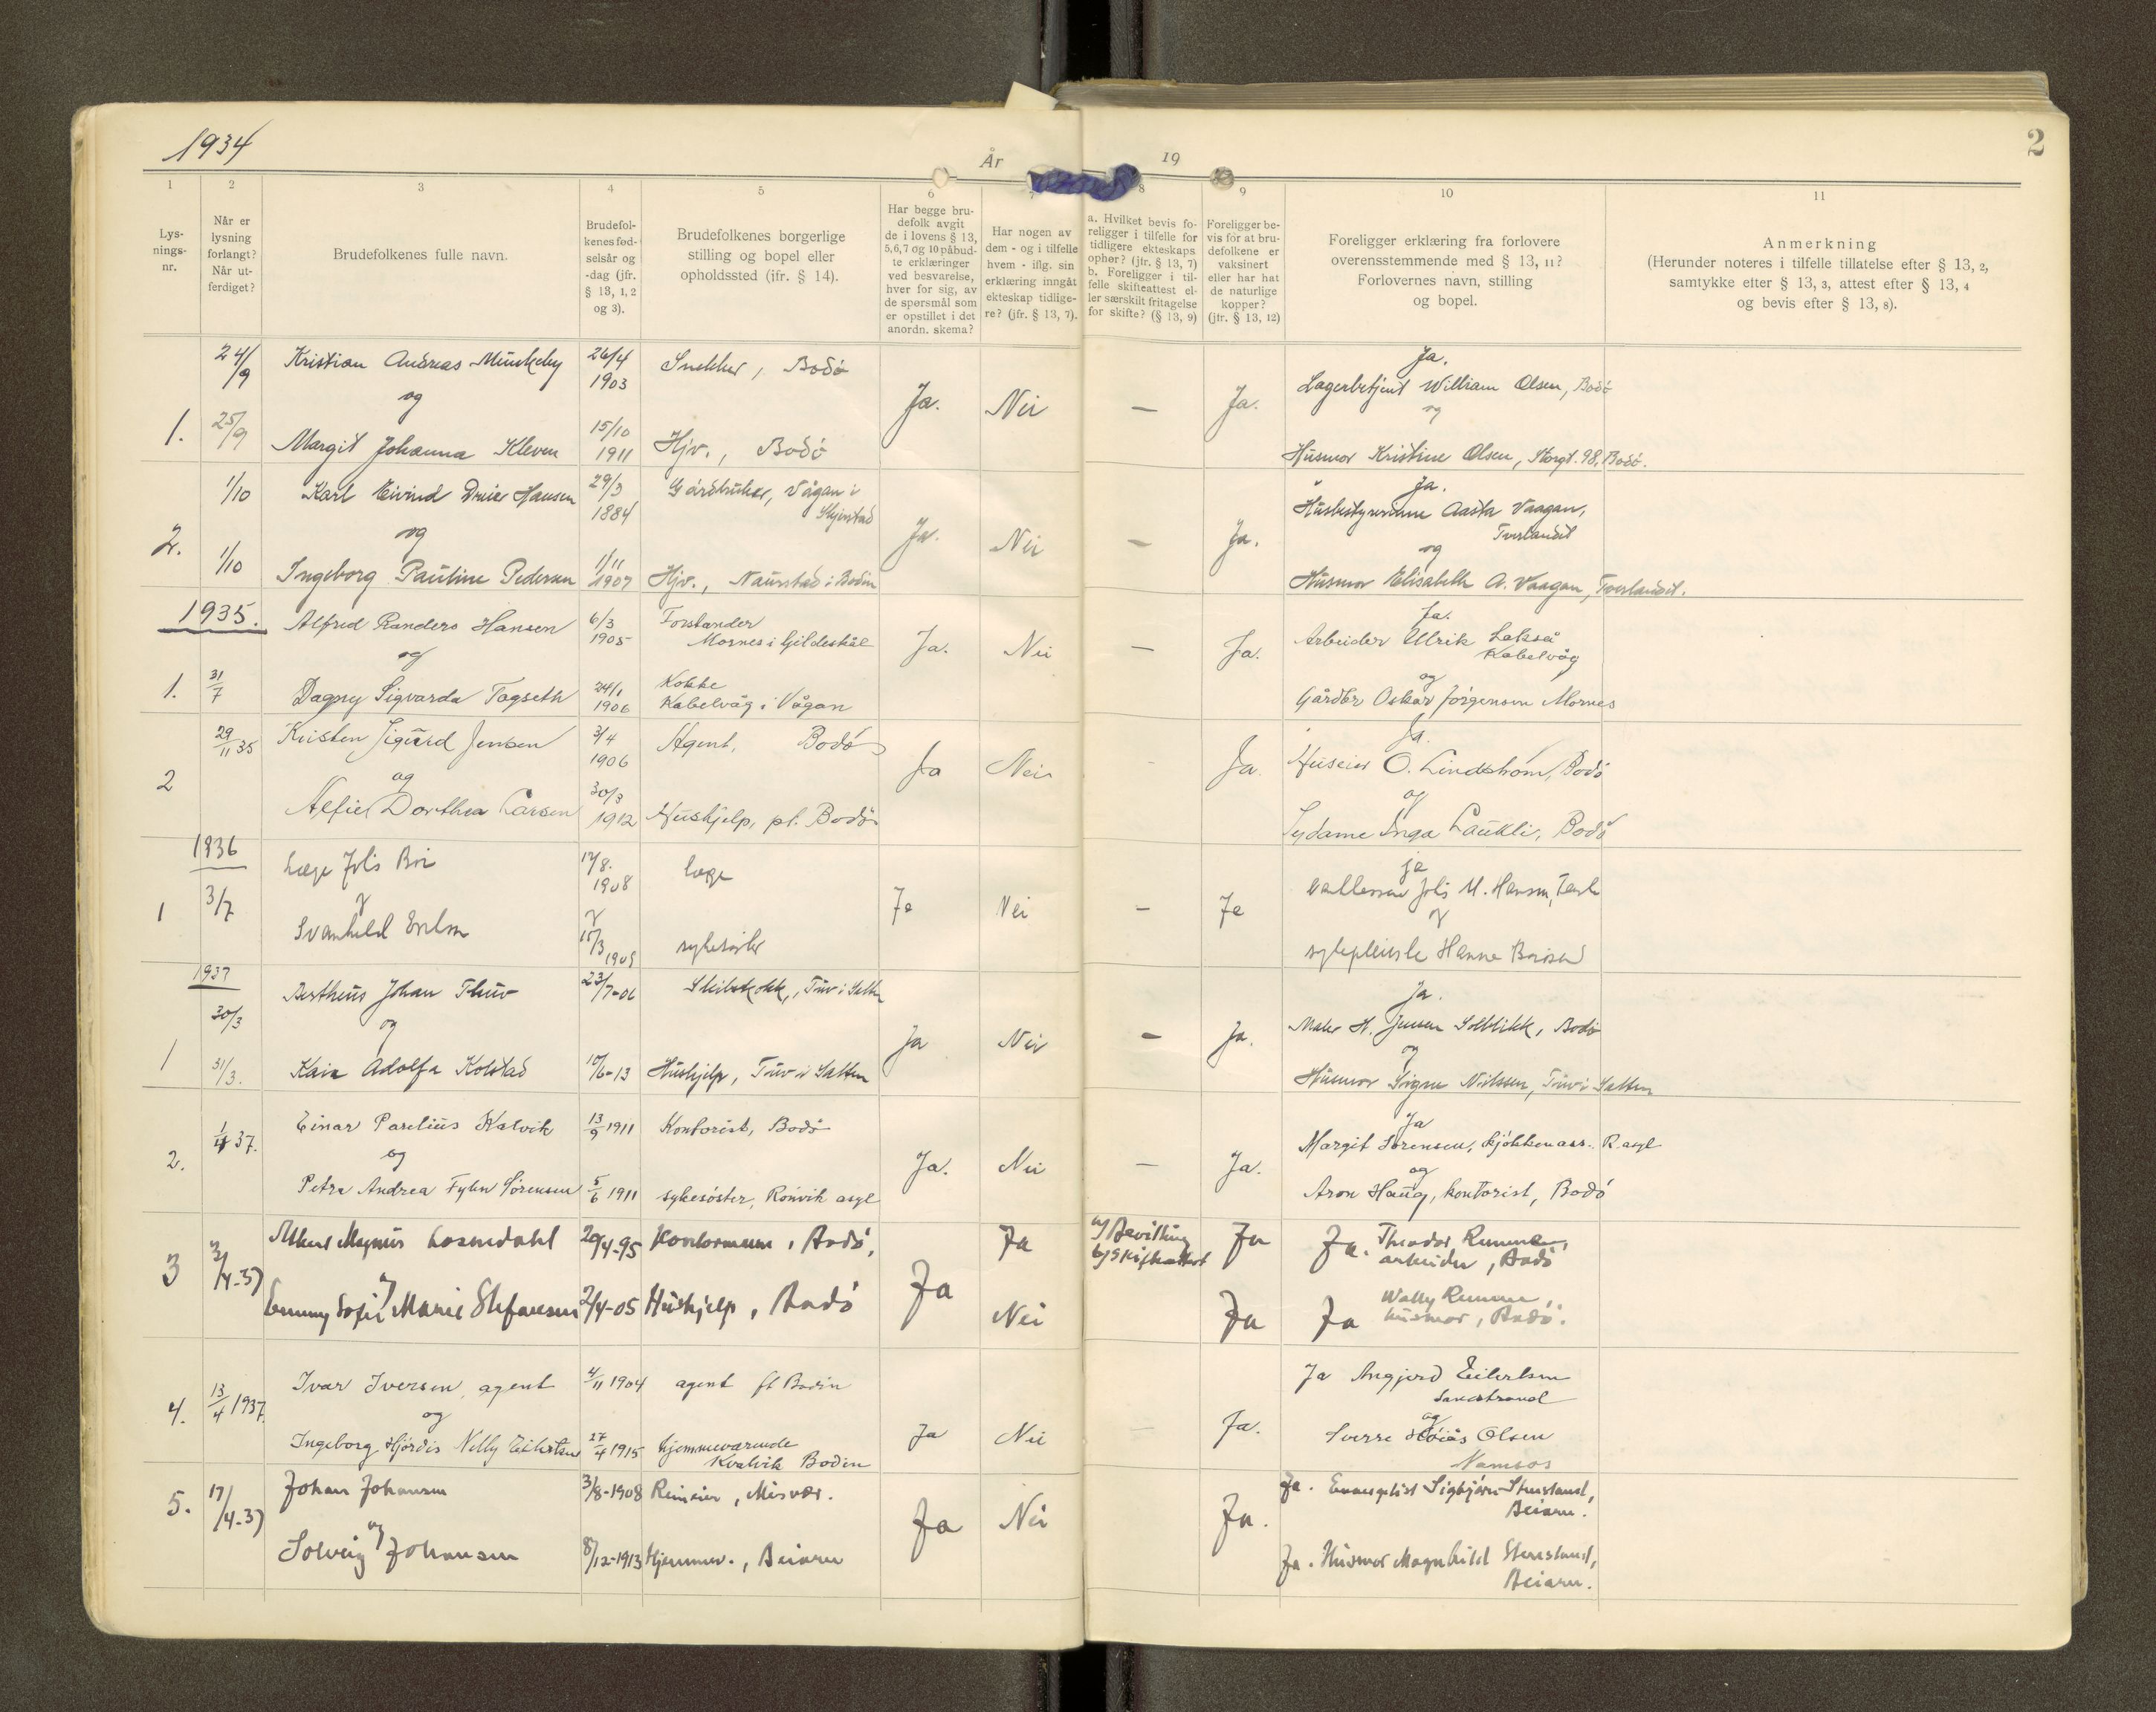 1934
År
19
2
1
2
3
4
5
6
8
9
10
11
Lys-
nings-
nr.
Når er
lysning
forlangt?
Når ut-
ferdiget?
Brudefolkenes fulle navn.
Brudefol-
kenes fød-
selsår og
-dag (jfr.
§ 13, 1, 2
og 3).
Brudefolkenes borgerlige
stilling og bopel eller
opholdssted (jfr. § 14).
Har begge bru-
defolk avgit
de i lovens § 13,
5, 6, 7 og 10 påbud-
te erklæringer
ved besvarelse,
hver for sig, av
de spørsmål som
er opstillet i det
anordn. skema?
Har nogen av
dem - og i tilfelle
hvem - iflg. sin
erklæring inngåt
ekteskap tidlige-
re? (jfr. § 13, 7).
a. Hvilket bevis fo-
religger i tilfelle for
tidligere ekteskaps
ophør? (jfr. § 13, 7)
b. Foreligger i til-
felle skifteattest el-
ler særskilt fritagelse
for skifte? (§ 13, 9)
Foreligger be-
vis for at bru-
defolkene er
vaksinert
eller har hat
de naturlige
kopper?
(jfr. § 13, 12)
Foreligger erklæring fra forlovere
overensstemmende med § 13, 11?
Forlovernes navn, stilling
og bopel.
Anmerkning
(Herunder noteres i tilfelle tillatelse efter § 13, 2,
samtykke efter § 13, 3, attest efter § 13, 4
og bevis efter § 13, 8).
1.
24/9
25/9
Kristian Andreas Munkeby
og
Margit Johanna Kleven
26/4
1903
15/10
1911
Snekker, Bodø
Hjv., Bodø
Ja.
Nei
—
Ja.
Ja.
Lagerbetjent William Olsen, Bodø
og
Husmor Kristine Olsen, Storgt. 98, Bodø.
2.
1/10
1/10
Karl Eivind Hansen
og
Ingeborg Pauline Pedersen
29/3
1884
1/11
1907
Gårdbruker, Vågan i
Skjerstad
Hjv., Naurstad i Bodin
Ja.
Nei
—
Ja.
Ja.
Husbestyrerinne Aasta Vaagan,
Tverlandet
og
Husmor Elisabeth A. Vaagan, Tverlandet.
1935.
1.
31/7
Alfred Randers Hansen
og
Dagny Sigvarda Fagseth
6/3
1905
24/1
1906
Forstander
Mornes i Gildeskål
Kokke
Kabelvåg i Vågan
Ja.
Nei
—
Ja.
Ja.
Arbeider Ulrik Lakså
Kabelvåg
og
Gårdbr Oskar Jørgensen Mornes
2
29/11 35
Kristen Sigurd Jensen
og
Alfield Dorthea Larsen
3/4
1906
30/3
1912
Agent, Bodø
Hushjelp, pt. Bodø
Ja
Nei
Ja.
Ja.
Huseier O. Lindstrøm, Bodø
og
Sydame Inga Laukli, Bodø
1936
1
3/7
Læge Johs
og
Svanhild
17/8.
1908
og
15/3
lege
Ja
Nei
—
Ja
ja
Johs M. Hansen,
og
Hanne
1937
1
30/3
31/3.
Bertheus Johan Thuv
og
Kaia Adolfa Kolstad
23/7-06
10/6-13
Skibskokk, Tuv i Salten
Hushjelp, Tuv i Salten
Ja
Nei
—
Ja.
Ja.
Maler H. Jensen Solblikk, Bodø
og
Husmor Signe Nilssen, Tuv i Salten
2.
1/4 37.
Einar Parelius Kalvik
og
Petra Andrea Fyhn Sørensen
13/9 1911
5/6 1911
Kontorist, Bodø
sykesøster, Rønvik asyl
Ja.
Nei
—
Ja.
Ja
Margit Sørensen, kjøkkenass. R. asyl
og
Aron Haug, kontorist, Bodø
3
3/4-37
Albert Magnus Losmdahl
og
Emmy Sofie Marie Stefansen
29/4-95
2/4-05
Kontormann, Bodø,
Hushjelp, Bodø
Ja
Ja
Nei
a) Bevilling
b) Skifteattest
Ja
Ja
Ja. Theodor
arbeider, Bodø
Ja Wally
husmor, Bodø.
4.
13/4 1937.
Ivar Iversen, agent
og
Ingeborg Hjørdis Nelly Eilertsen
4/11 1904
27/4 1915
agent pt Bodin
hjemmeværende
Kvalvik Bodin
Ja
Nei
—
Ja.
Ja Angjerd Eilertsen
Sandstrand
og
Sverre Høiås Olsen
Namsos
5.
17/4-37
Johan Johansen
og
Solveig Johansen
3/8-1908
8/12-1913
Reineier, Misvær.
Hjemmev., Beiarn
Ja
Nei
Ja.
Ja. Evangelist Sigbjørn Stensland,
Beiarn.
Ja. Husmor Magnhild Stensland,
Beiarn.